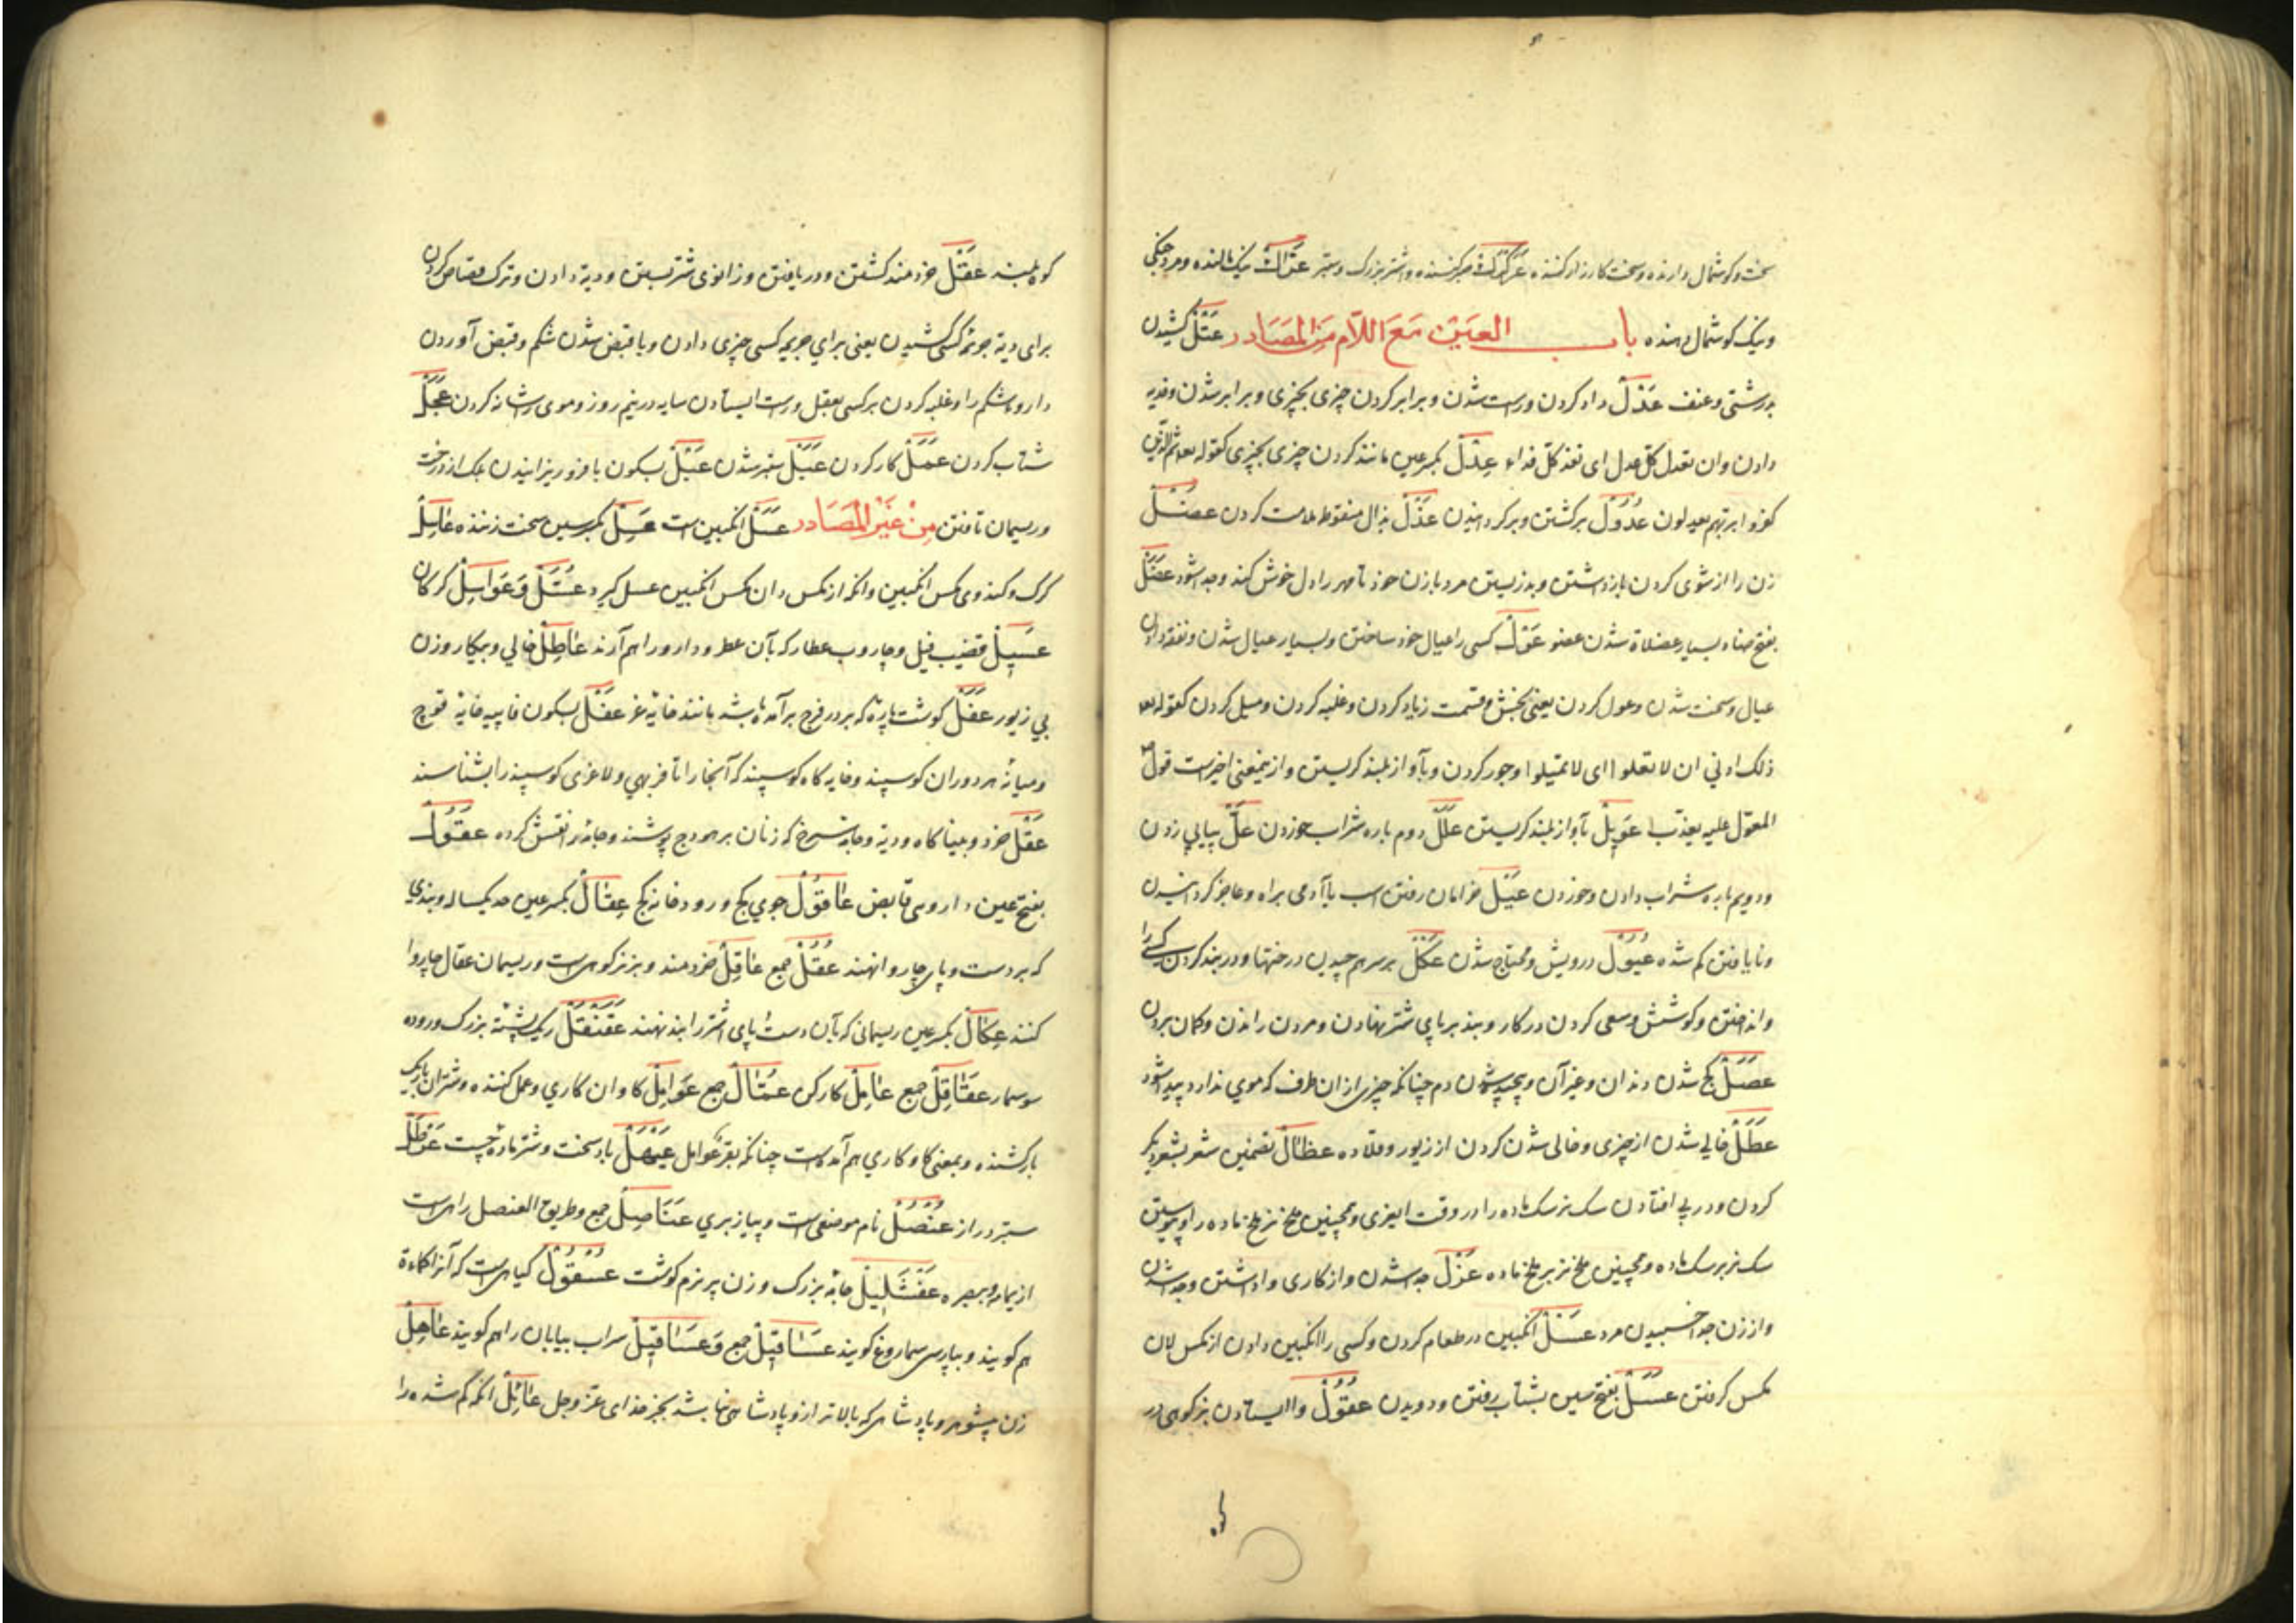 سخت و کوشمال دارنده و سخت کارزار کننده عَرَکْرَکْ و اشتر بزرک و ستبر عَرَّاکْ نیک مالنده و مرد جنکی
و نیک کوشمال دهنده باب العَیْن مَعَ اللّام مِنَ المَصَادر عَتْلْ کشیدن
بدرشتی و عنف عَدْلْ داد کردن و راست شدن و برابر کردن چیزی بچیزی و برابر شدن و فدیه
دادن و ان تعدل کل عدل ای تفد کلّ فداء عِدْلْ بکسر عین مانند کردن چیزی بچیزی کقوله تعا ثم الذین
کفروا بربهم یعدلون عُدُوْلْ برکشتن و برکردانیدن عَذْلْ بذال منقوط ملامت کردن عَضْلْ
زن را از شوی کردن بازداشتن و بد زیستن مرد با زن خود تا مهر را دل خوش کند و جدا شود عَضَلْ
بفتح ضاد بسیار عضلاة شدن عضو عَوْلْ کسی را عیال خود ساختن و بسیار عیال شدن و نفقه دادن
عیال و سخت شدن و عول کردن یعنی بخش و قسمت زیاد کردن و غلبه کردن و میل کردن کقوله تعا
ذلک ادنی ان لا تعولوا ای لا تمیلوا و جور کردن و بآواز بلند کریستن و از ینمعنی اخیرست قول
المعول علیه یعذب عَوِیْلْ بآواز بلند کریستن عَلَلْ دوم باره شراب خوردن عَلّْ پیاپی زدن
و دویم باره شراب دادن و خوردن عَیْلْ خرامان رفتن اسب یا آدمی براه و عاجز کردانیدن
و نایافتن کم شده عُیُوْلْ درویش و محتاج شدن عَکْلْ بر سر هم چیدن درختها و در بند کردن کسی را
و انداختن و کوشش و سعی کردن در کار و بند بر پای شتر نهادن و مردن راندن و کمان بردن
عَصَلْ کج شدن دندان و غیر آن و پیچیده شدن دم چنانکه چیزی از ان طرف که موی ندارد پیدا شود
عَطَلْ خالی شدن از چیزی و خالی شدن کردن از زیور و قلاده عِظَالْ تضمین شعر بشعر دیکر
کردن و در پی افتادن سک نر سک ماده را در وقت و همچنین ملخ نر ملخ ماده را و پیوستن
سک نر بر سک ماده و همچنین ملخ نر بر ملخ ماده عَزْلْ جدا شدن و از کاری واداشتن و جدا شدن
و از زن جدا خسبیدن مرد عَسْلْ انکبین در طعام کردن و کسی را انکبین دادن از مکس لان
مکس کرفتن عَسَلْ بفتح سین بشتاب رفتن و دویدن عُقُوْلْ وا ایستادن بز کوهی در
کوه بلند عَقْلْ خردمند کشتن و دریافتن و زانوی شتر بستن و دیة دادن و ترک قصاص کردن
برای دیة کسی کشیدن یعنی برای جریمه کسی چیزی دادن و با قبض شدن شکم و قبض آوردن
دارو شکم را و غلبه کردن بر کسی بعقل و راست ایستادن سایه در نیم روز و موی را شانه کردن عَجَلْ
شتاب کردن عَمَلْ کار کردن عَبَلْ ستبر شدن عَبْلْ بسکون با فرو ریزانیدن برک از درخت
و ریسمان تافتن مِنْ غَیْرِ المَصَادر عَسَلْ انکبین است عَسِلْ بکسر سین سخت زننده عَاسِلْ
کرک و کننده مکس انکبین و انکه از مکس دان مکس انکبین عسل کیرد عُسَّلْ وَ عَوَاسِلْ کرکان
عَسِیْلْ قضیب فیل و جاروب عطار که بآن عطر و دارو را هم آرند عَاطِلْ خالی و بیکار و زن
بی زیور عَفَلْ کوشت پارۀ که بر در فرج برآمده باشد مانند خایۀ غر عَفْلْ بسکون فا پیه خایۀ قوچ
و میانۀ هر دو ران کوسپند و خایه کاه کوسپند که آنجا را تا فربهی و لاغری کوسپند را بشناسند
عَقْلْ خرد و پناه کاه و دیة و جامۀ سرخ که زنان بر هودج پوشند و جامۀ را نقش کرده عَقُوْلْ
بفتح عین داروی قابض عَاقُوْلْ جوی کج و رودخانه کج عِقَالْ بکسر عین صدقۀ یکساله و بندی
که بر دست و پای چاروا نهند عُقُلْ جمع عَاقِلْ خردمند و بز کوهی است و ریسمان عقال چاروا
کنند عِکَالْ بکسر عین ریسمانی که بآن دست و پای اشتر را بند نهند عَقَنْقَلْ ریک پشتۀ بزرک و رودۀ
سوسمار عَقَاقِلْ جمع عَامِلْ کارکن عُمَّالْ جمع عَوَامِلْ کاوان کاری و عمل کننده و شتران باریک
بارکشنده و بمعنی کاو کاری هم آمده است چنانکه بقر عوامل عَیْهَلْ باد سخت و شتر مادۀ چست عَرْطَلْ
ستبر دراز عُنْصُلْ نام موضعی است و پیاز بری عَنَاصِلْ جمع و طریق العنصل راهی است
از یمامه ببصره عَفْشَلِیْلْ جامۀ بزرک و زن پیر نرم کوشت عُسْقُوْلْ کیاهی است که آنرا کماءة
هم کویند و بپارسی سماروغ کویند عَسَاقِیْلْ جمع وَ عَسَاقِیْلْ سراب بیابان را هم کویند عَاهِلْ
زن بیشوهر و پادشاهی که بالاتر از و پادشاهی نباشد بجز خدای عزوجل عَائِلْ انکه کم شده را